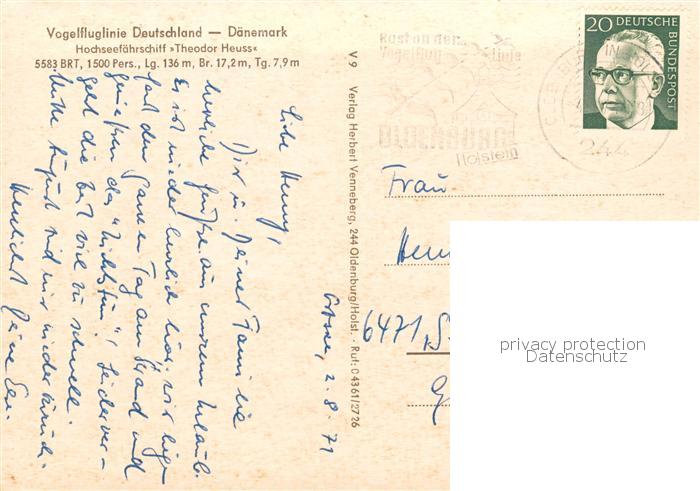 Vogelfluglinie Deutschland — Dänemark
Hochseefährschiff »Theodor Heuss«
5583 BRT, 1500 Pers., Lg. 136 m, Br. 17,2 m, Tg. 7,9 m
V 9 Verlag Herbert Venneberg, 244 Oldenburg/Holst. · Ruf: 0 4361/2726
Rast an der
Vogelflug Linie
OLDENBURG
Holstein
20 DEUTSCHE
BUNDESPOST
244
2.8.71
Liebe Henny,
Dir u. Deiner Familie
herzliche Grüße aus unserem Urlaub.
Es ist wieder herrlich hier, wir liegen
fast den ganzen Tag am Strand und
genießen das "Nichtstun"! Leider ver-
geht die Zeit viel zu schnell.
Mitte August sind wir wieder zurück.
Herzlichst Deine
Frau
6471
privacy protection
Datenschutz